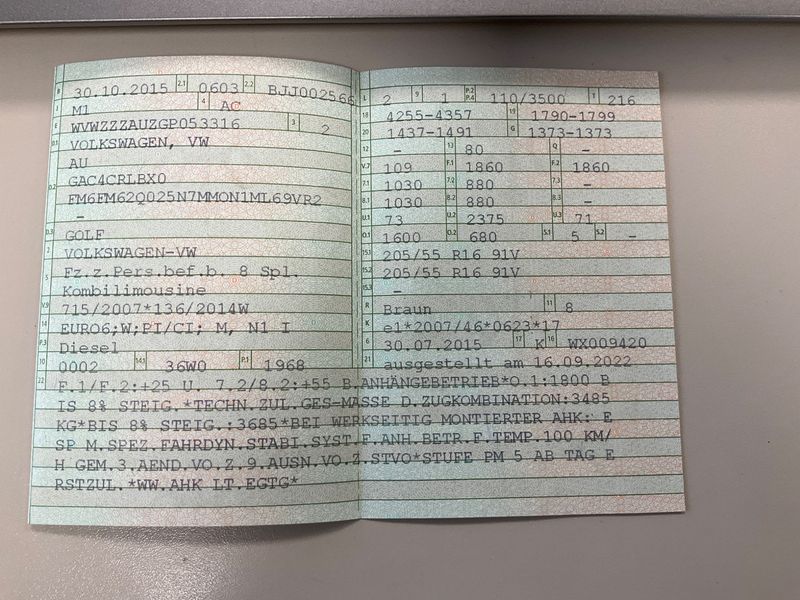 B 30.10.2015 2.1 0603 2.2 BJJ002566
J M1 4 AC
E WVWZZZAUZGP053316 3 2
D.1 VOLKSWAGEN, VW
AU
D.2 GAC4CRLBX0
FM6FM62Q025N7MMON1ML69VR2
-
D.3 GOLF
2 VOLKSWAGEN-VW
5 Fz.z.Pers.bef.b. 8 Spl.
Kombilimousine
V.9 715/2007*136/2014W
14 EURO6;W;PI/CI; M, N1 I
P.3 Diesel
10 0002 14.1 36W0 P.1 1968
L 2 9 1 P.2 P.4 110/3500 T 216
18 4255-4357 19 1790-1799
20 1437-1491 G 1373-1373
12 - 13 80 Q -
V.7 109 F.1 1860 F.2 1860
7.1 1030 7.2 880 7.3 -
8.1 1030 8.2 880 8.3 -
U.1 73 U.2 2375 U.3 71
O.1 1600 O.2 680 S.1 5 S.2 -
15.1 205/55 R16 91V
15.2 205/55 R16 91V
15.3 -
R Braun 11 8
K e1*2007/46*0623*17
6 30.07.2015 17 K 16 WX009420
21 ausgestellt am 16.09.2022
22 F.1/F.2:+25 U. 7.2/8.2:+55 B.ANHÄNGEBETRIEB*O.1:1800 B
IS 8% STEIG.*TECHN.ZUL.GES-MASSE D.ZUGKOMBINATION:3485
KG*BIS 8% STEIG.:3685*BEI WERKSEITIG MONTIERTER AHK: E
SP M.SPEZ.FAHRDYN.STABI.SYST.F.ANH.BETR.F.TEMP.100 KM/
H GEM.3.AEND.VO.Z.9.AUSN.VO.Z.STVO*STUFE PM 5 AB TAG E
RSTZUL.*WW.AHK LT.EGTG*